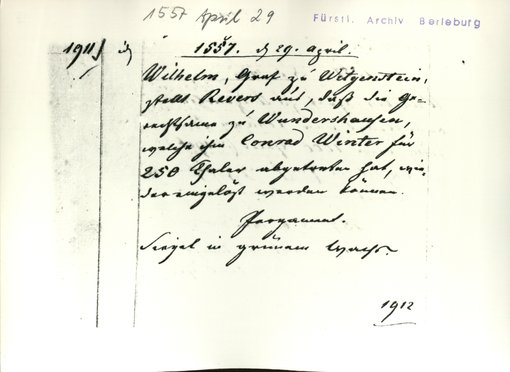 1557 April 29
Fürstl. Archiv Berleburg
1911
1557. d 29. April.
Wilhelm, Graf zu Witgenstein,
stellt Revers aus, daß die Ge-
rechtsame zu Wundershausen,
welche ihm Conrad Winter für
250 Thaler abgetreten hat, wie-
der eingelöst werden können.
Pergament.
Siegel in grünem Wachs.
1912